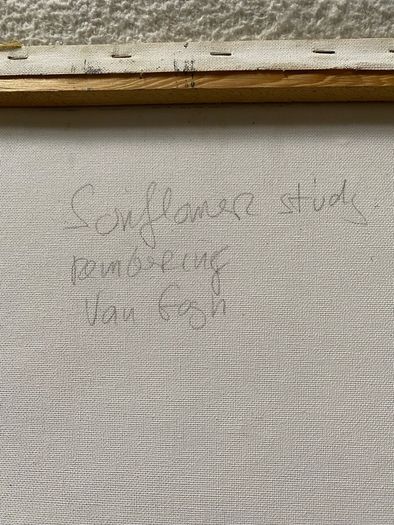 Sonflower study
rembering
Van Gogh